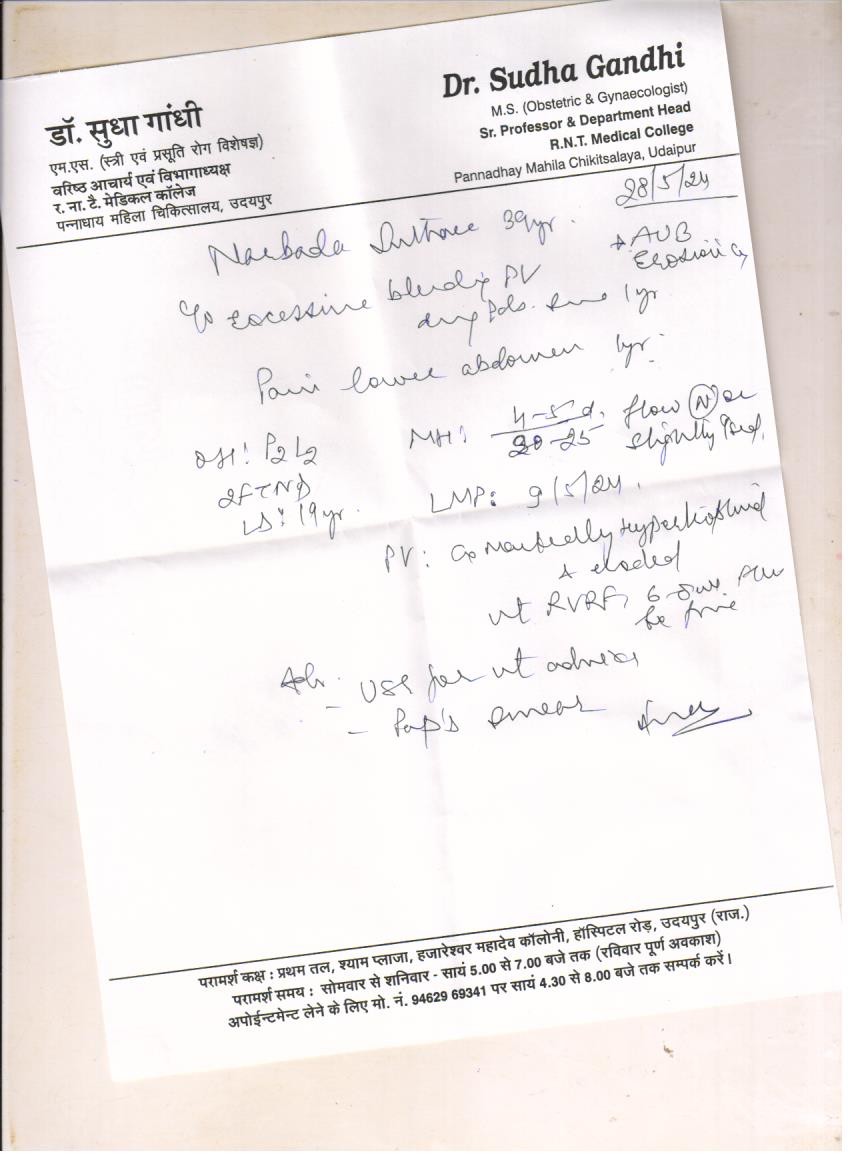 डॉ. सुधा गांधी
एम.एस. (स्त्री एवं प्रसूति रोग विशेषज्ञ)
वरिष्ठ आचार्य एवं विभागाध्यक्ष
र. ना. टै. मेडिकल कॉलेज
पन्नाधाय महिला चिकित्सालय, उदयपुर
Dr. Sudha Gandhi
M.S. (Obstetric & Gynaecologist)
Sr. Professor & Department Head
R.N.T. Medical College
Pannadhay Mahila Chikitsalaya, Udaipur
28/5/24
Narbada 39yr.
AUB
Erosion Cx
c/o excessive bleeding PV
during Pds. since 1yr
Pain lower abdomen 1yr.
OH: P2L2
2FTND
LD: 19yr.
MH: 4-5 d. flow N or
20-25 slightly
LMP: 9/5/24.
PV: Cx markedly hypertrophied
+ eroded
ut RVRF, 6
be free
Adv.
- USG for ut adnexa
- Pap's smear
परामर्श कक्ष : प्रथम तल, श्याम प्लाजा, हजारेश्वर महादेव कॉलोनी, हॉस्पिटल रोड़, उदयपुर (राज.)
परामर्श समय : सोमवार से शनिवार - सायं 5.00 से 7.00 बजे तक (रविवार पूर्ण अवकाश)
अपोईन्टमेन्ट लेने के लिए मो. नं. 94629 69341 पर सायं 4.30 से 8.00 बजे तक सम्पर्क करें।